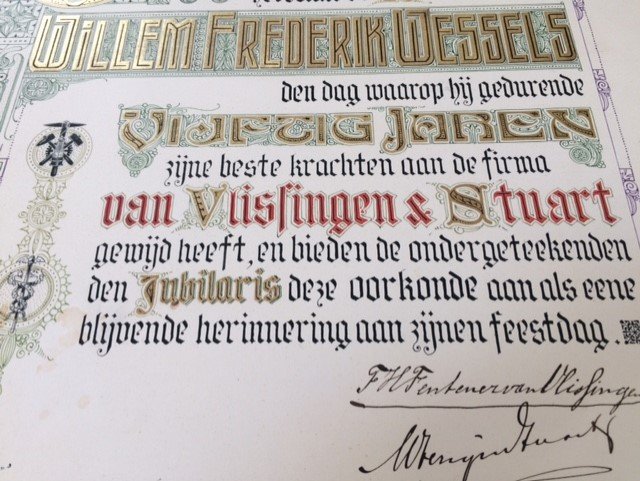 Willem Frederik Wessels
den dag waarop hij gedurende
Vijftig Jaren
zijne beste krachten aan de firma
van Vlissingen & Stuart
gewijd heeft, en bieden de ondergeteekenden
den Jubilaris deze oorkonde aan als eene
blijvende herinnering aan zijnen feestdag.
F H Fentener van Vlissingen